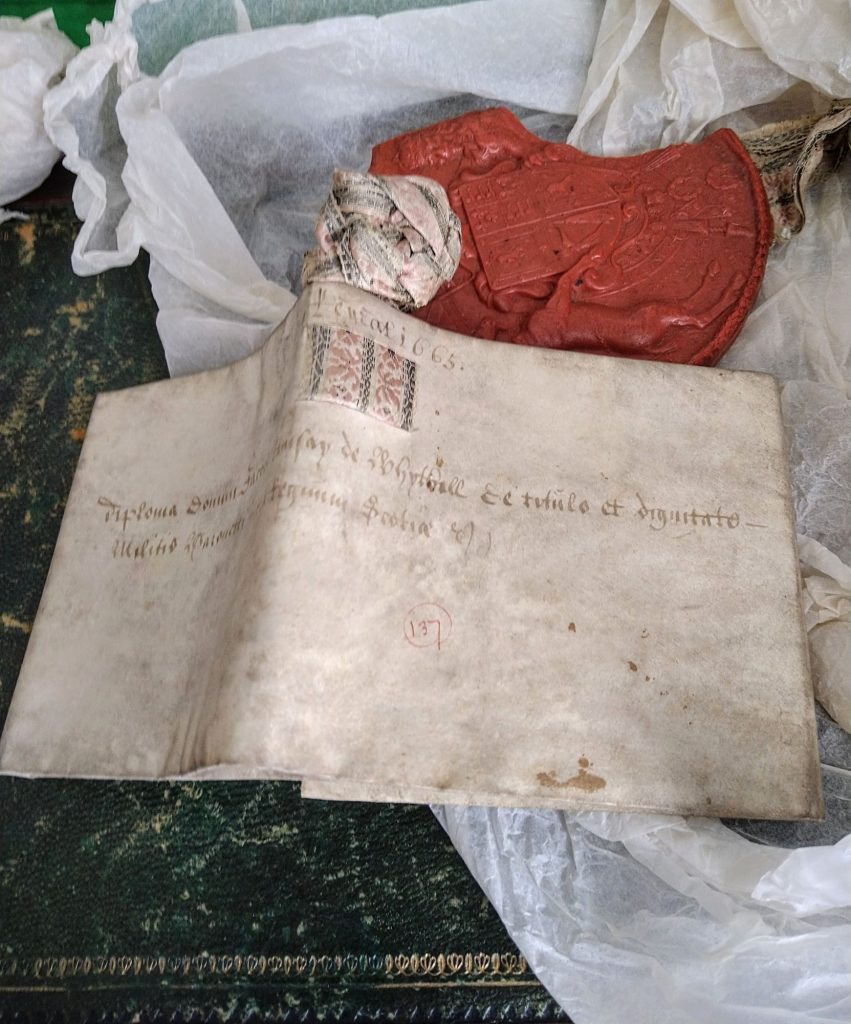 1665.
diploma Domini de Whythill de titulo et dignitate
Militis Baronetti Regnum Scotiæ &c
137